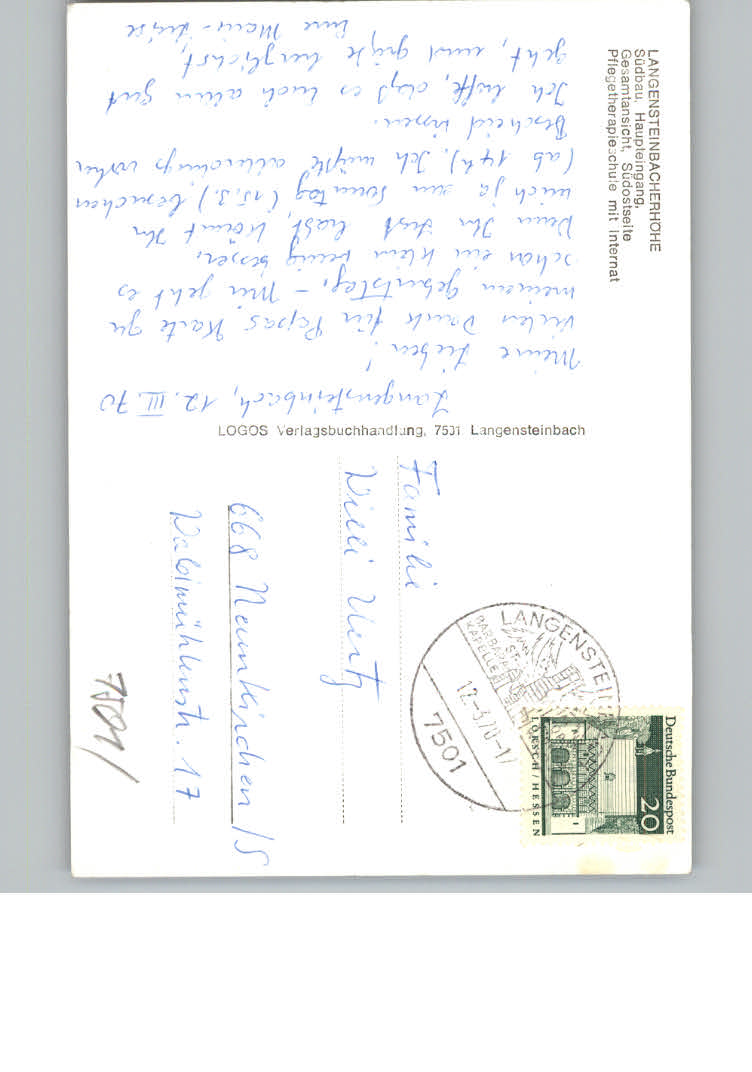 LANGENSTEINBACHERHÖHE
Südbau, Haupteingang,
Gesamtansicht, Südostseite
Pflegetherapieschule mit Internat
Langensteinbach, 12. III. 70
Meine Lieben!
Vielen Dank für Papas Karte zu
meinem Geburtstag. – Mir geht es
schon ein klein wenig besser.
Wenn Ihr Lust habt, könnt Ihr
mich ja am Sonntag (15.3.) besuchen
(ab 14h). Ich müßte allerdings vorher
Bescheid wissen.
Ich hoffe, daß es Euch allen gut
geht, und grüße herzlichst,
Eure
LOGOS Verlagsbuchhandlung, 7501 Langensteinbach
Familie
Willi
668 Neunkirchen/S
17
LANGENSTEIN
ST.
BARBARA
KAPELLE
12.-3.70-17
7501
Deutsche Bundespost
20
LORSCH/HESSEN
7501/